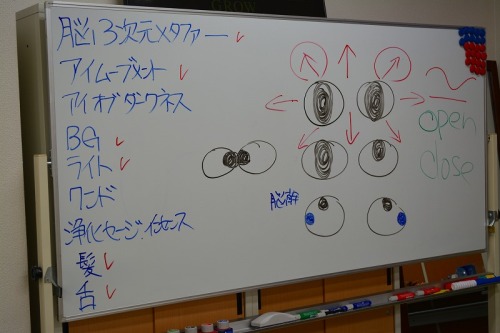 脳 3次元メタファー
アイムーブメント
アイオブダークネス
BG
ライト
ワンド
浄化セージ.インセンス
髪
舌
脳幹
open
close